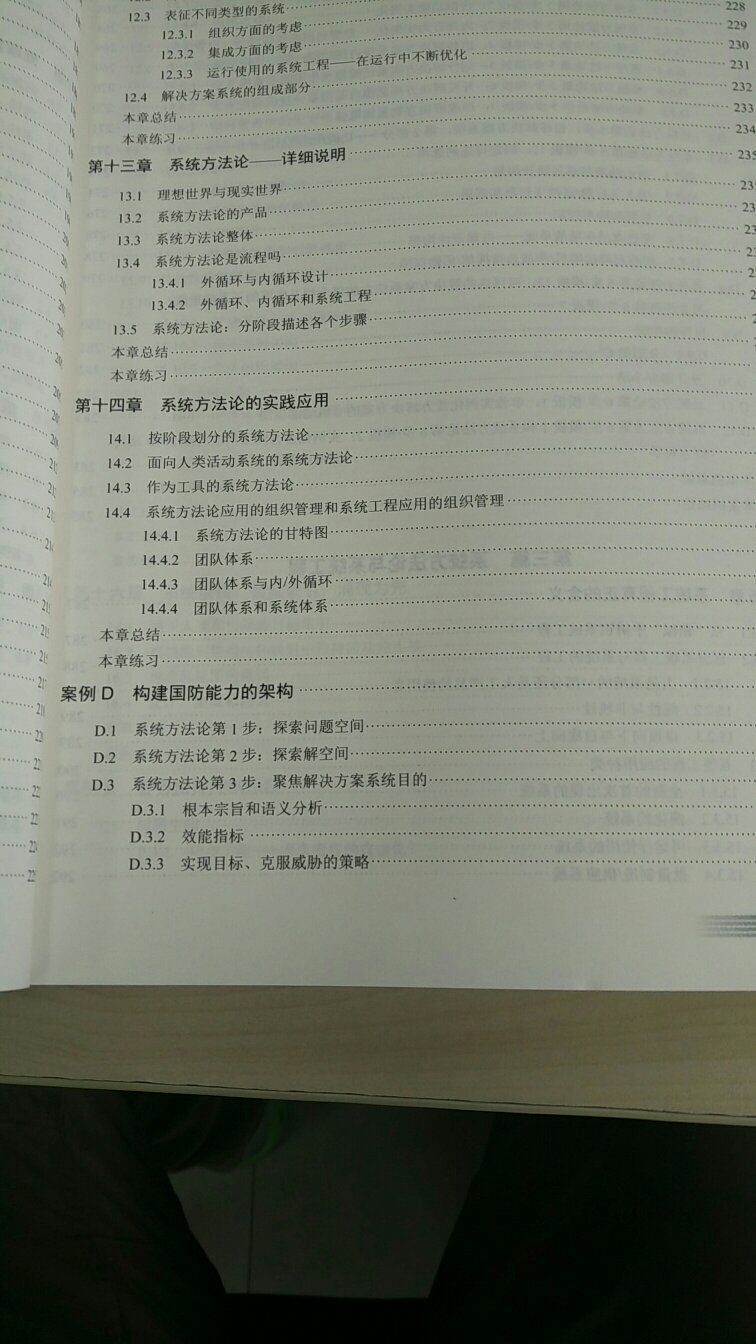 12.3 表征不同类型的系统 228
12.3.1 组织方面的考虑 229
12.3.2 集成方面的考虑 230
12.3.3 运行使用的系统工程——在运行中不断优化 231
12.4 解决方案系统的组成部分 232
本章总结 233
本章练习 234
第十三章 系统方法论——详细说明 235
13.1 理想世界与现实世界
13.2 系统方法论的产品
13.3 系统方法论整体
13.4 系统方法论是流程吗
13.4.1 外循环与内循环设计
13.4.2 外循环、内循环和系统工程
13.5 系统方法论：分阶段描述各个步骤
本章总结
本章练习
第十四章 系统方法论的实践应用
14.1 按阶段划分的系统方法论
14.2 面向人类活动系统的系统方法论
14.3 作为工具的系统方法论
14.4 系统方法论应用的组织管理和系统工程应用的组织管理
14.4.1 系统方法论的甘特图
14.4.2 团队体系
14.4.3 团队体系与内/外循环
14.4.4 团队体系和系统体系
本章总结
本章练习
案例 D 构建国防能力的架构
D.1 系统方法论第 1 步：探索问题空间
D.2 系统方法论第 2 步：探索解空间
D.3 系统方法论第 3 步：聚焦解决方案系统目的
D.3.1 根本宗旨和语义分析
D.3.2 效能指标
D.3.3 实现目标、克服威胁的策略